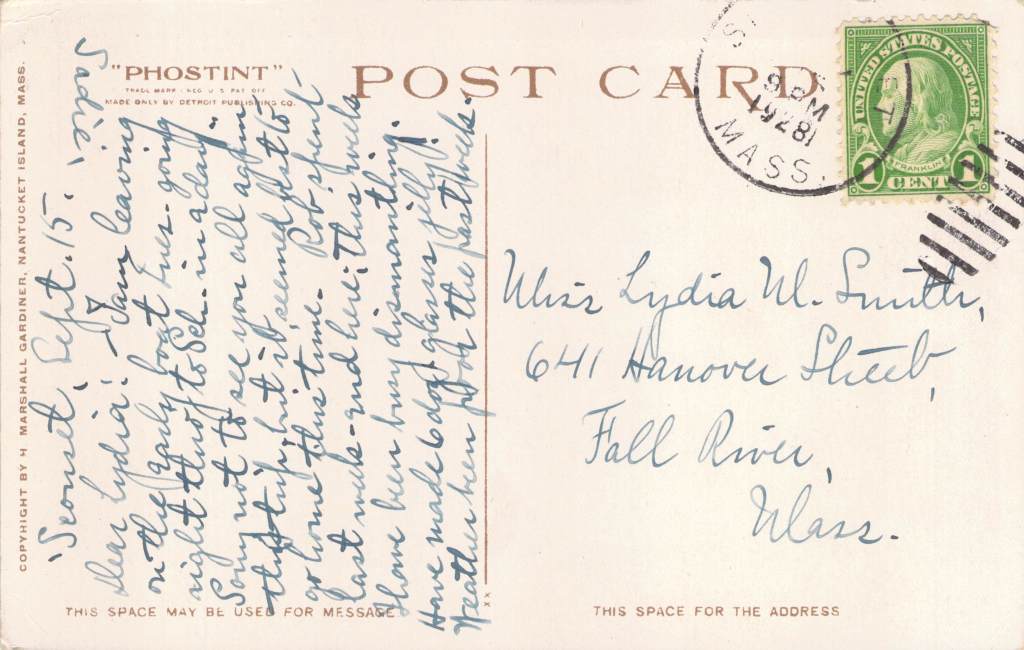 COPYRIGHT BY H MARSHALL GARDINER, NANTUCKET ISLAND, MASS.
"PHOSTINT"
TRADE MARK - REG U S PAT OFF
MADE ONLY BY DETROIT PUBLISHING CO.
POST CARD
'Sconset, Sept. 15.
Dear Lydia: - I am leaving
on the early boat Tues. going
right thro' to Sch. in a day."
Sorry not to see you all again
this trip, but it seemed best to
go home this time. Rob spent
last week-end here. This week
I have been busy dismantling.
Have made 6 doz. glasses jelly.
Weather been good the past week.
Sadie.
THIS SPACE MAY BE USED FOR MESSAGE
XX
9 PM
1928
MASS.
UNITED STATES POSTAGE
FRANKLIN
1 CENT 1
Miss Lydia M. Smith,
641 Hanover Street,
Fall River,
Mass.
THIS SPACE FOR THE ADDRESS